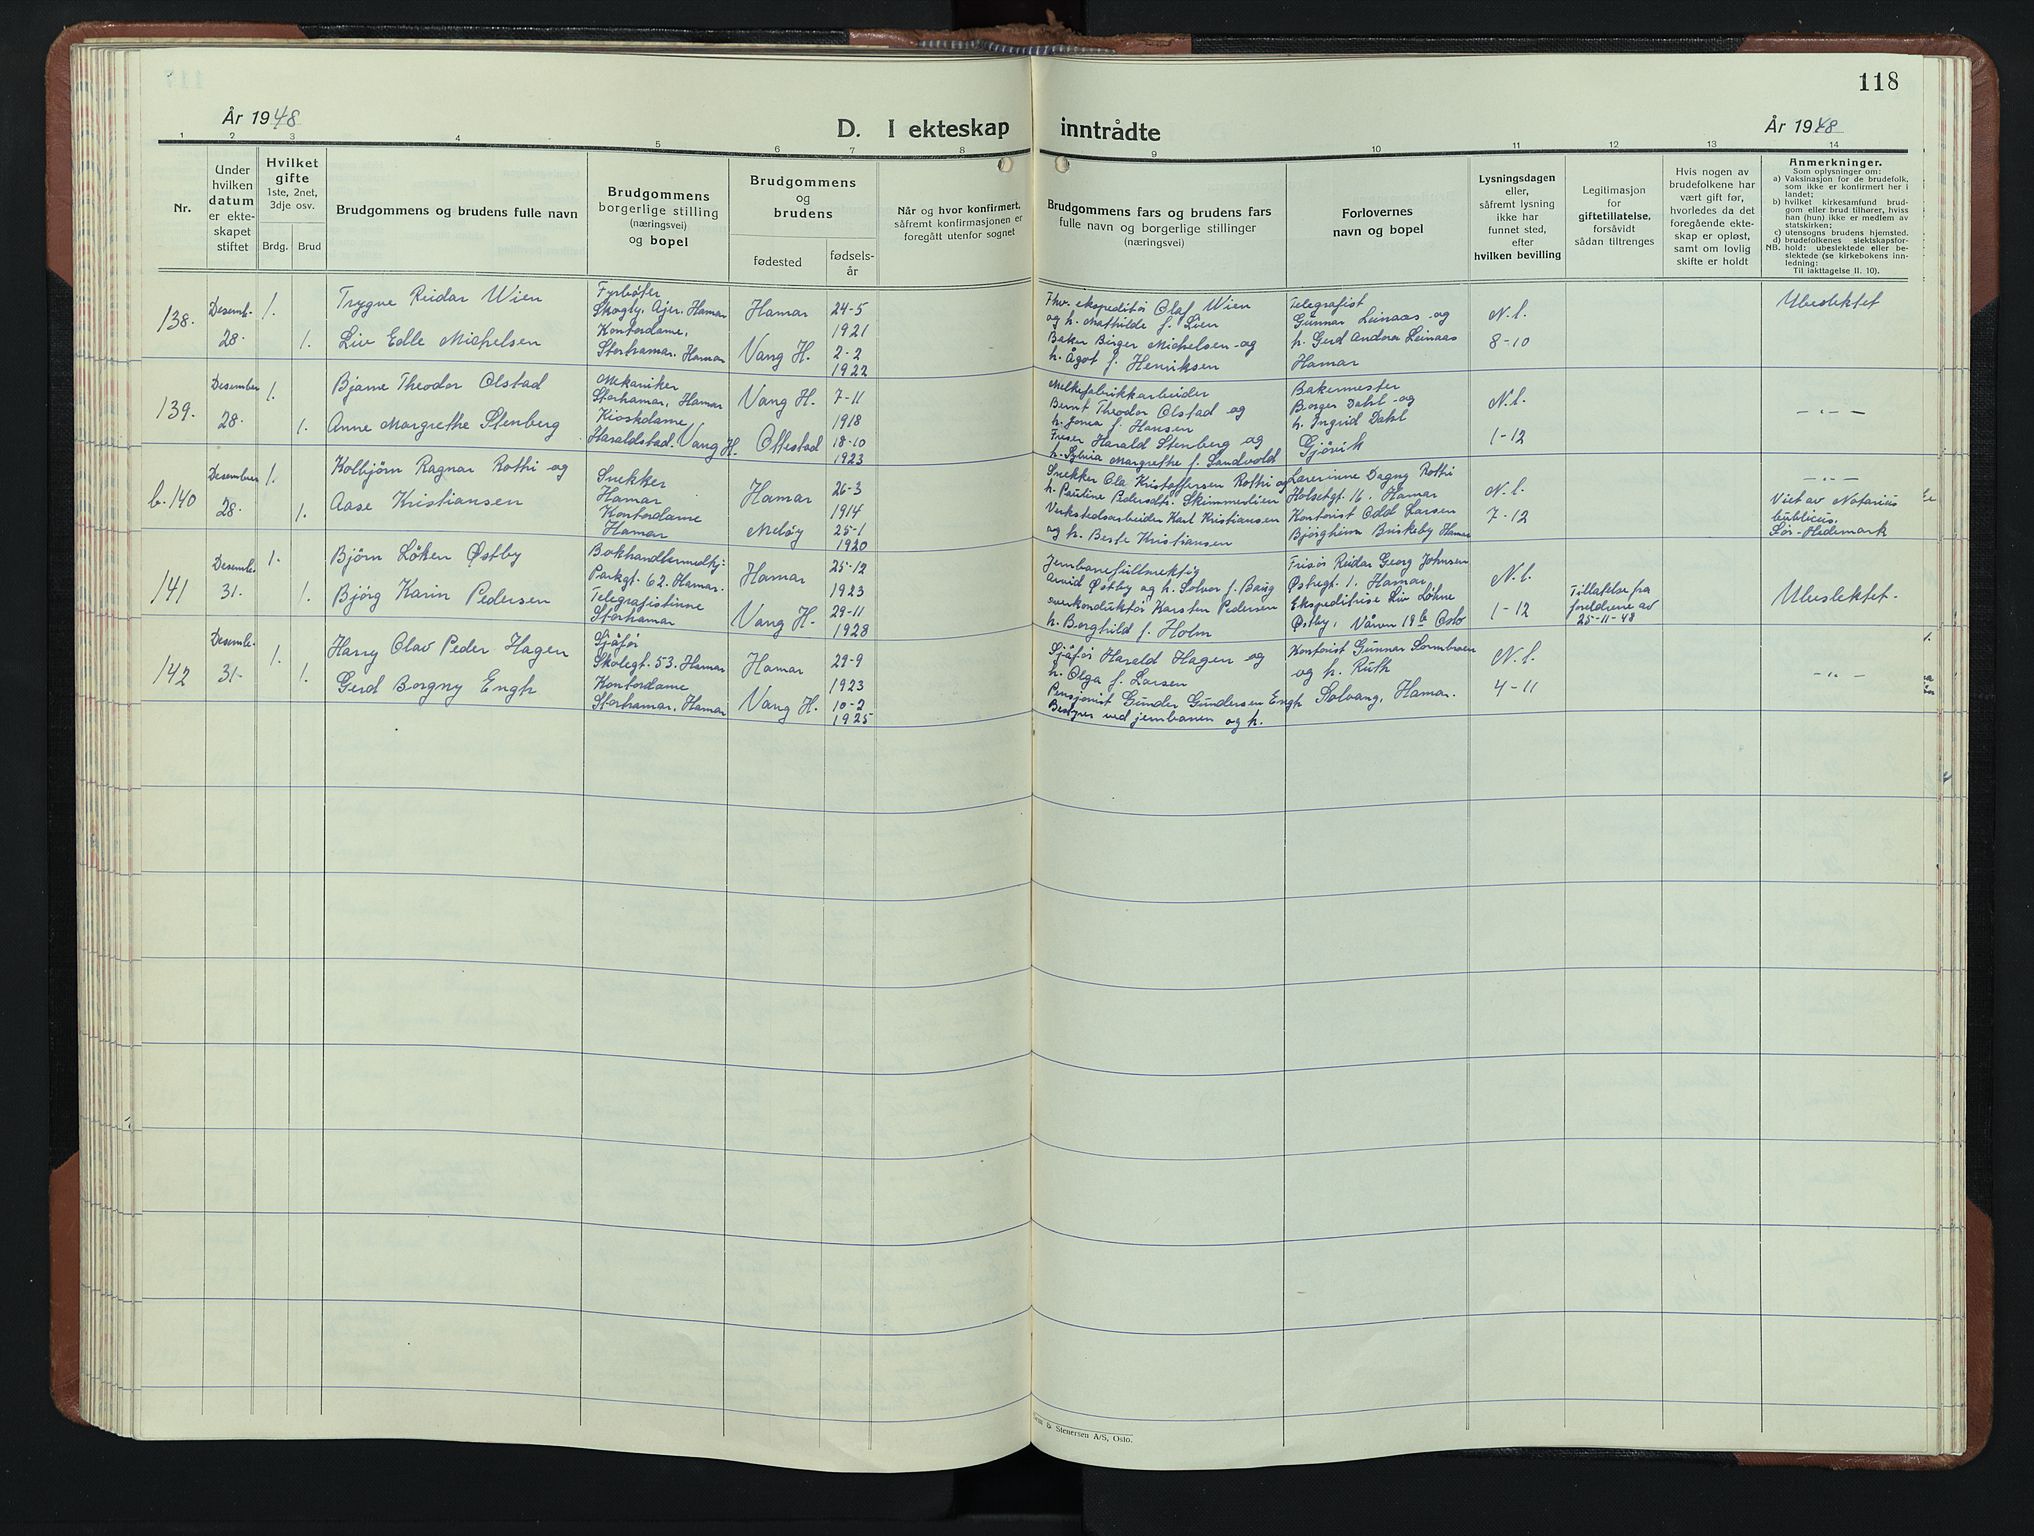 118
År 1948
D. I ekteskap inntrådte
År 1948
1 2 3 4 5 6 7 8 9 10 11 12 13 14
Nr.
Under hvilken datum er ekteskapet stiftet
Hvilket gifte 1ste, 2net, 3dje osv.
Brdg. Brud
Brudgommens og brudens fulle navn
Brudgommens borgerlige stilling (næringsvei) og bopel
Brudgommens og brudens
fødested
fødselsår
Når og hvor konfirmert, såfremt konfirmasjonen er foregått utenfor sognet
Brudgommens fars og brudens fars fulle navn og borgerlige stillinger (næringsvei)
Forlovernes navn og bopel
Lysningsdagen eller, såfremt lysning ikke har funnet sted, efter hvilken bevilling
Legitimasjon for giftetillatelse, forsåvidt sådan tiltrenges
Hvis nogen av brudefolkene har vært gift før, hvorledes da det foregående ekteskap er opløst, samt om lovlig skifte er holdt
Anmerkninger.
Som oplysninger om:
a) Vaksinasjon for de brudefolk, som ikke er konfirmert her i landet;
b) hvilket kirkesamfund brudgom eller brud tilhører, hviss han (hun) ikke er medlem av statskirken;
c) utensogns brudens hjemsted.
d) brudefolkenes slektskapsforhold: ubeslektede eller beslektede (se kirkebokens innledning:
NB. Til iakttagelse II. 10).
138. Desemb. 28. 1. 1.
Trygve Reidar Wien
Liv Edle Michelsen
Fyrbøter
Skogly, Ajer, Hamar
Kontordame,
Storhamar, Hamar
Hamar 24-5 1921
Vang H. 2-2 1922
Fhv. ekspeditør Olaf Wien
og h. Mathilde f. Lien
Baker Birger Michelsen og
h. Ågot f. Henriksen
Telegrafist
Gunnar Leinaas og
h. Gerd Andora Leinaas
Hamar
N.l. 8-10
Ubeslektet
139. Desember 28. 1. 1.
Bjarne Theodor Olstad
Anne Margrethe Stenberg
Mekaniker
Storhamar, Hamar
Kioskdame
Haraldstad. Vang H.
Vang H. 7-11 1918
Ottestad 18-10 1923
Melkefabrikkarbeider
Bernt Theodor Olstad og
h. Jonea f. Hansen
Friser Harald Stenberg og
h. Sylvia Margrethe f. Sandvold
Bakermester
Borger Dahl og
h. Ingrid Dahl
Gjøvik
N.l. 1-12
— „ —
b. 140 Desember 28. 1. 1.
Kolbjørn Ragnar Rothi og
Aase Kristiansen
Snekker
Hamar
Kontordame
Hamar
Hamar 26-3 1914
Meløy 25-1 1920
Snekker Ola Kristoffersen Rothi og
h. Pauline Pedersdtr. Skimmeslien
Verkstedsarbeider Karl Kristiansen
og h. Berte Kristiansen
Lærerinne Dagny Rothi
Holsetgt. 16, Hamar
Kontorist Odd Larsen
Bjørgheim Briskeby Hamar
N.l. 7-12
— „ —
Viet av Notarius
publicus,
Sør-Hedemark
141 Desemb. 31. 1. 1.
Bjørn Løken Østby
Bjørg Karin Pedersen
Bokhandlermedhj.
Parkgt. 62. Hamar.
Telegrafistinne
Storhamar
Hamar 25-12 1923
Vang H. 29-11 1928
Jernbanefullmektig
Arvid Østby og h. Solvor f. Baug
overkonduktør Karsten Pedersen
h. Borghild f. Holm
Frisør Reidar Georg Johnsen
Østregt. 1. Hamar,
Ekspeditrise Liv Løhne
Østby, Våren 19b Oslo
N.l. 1-12
Tillatelse fra
foreldrene av
25-11-48
Ubeslektet.
142 Desemb. 31. 1. 1.
Harry Olav Peder Hagen
Gerd Borgny Engh
Sjåfør
Skolegt. 53. Hamar
Kontordame
Storhamar, Hamar
Hamar 29-9 1923
Vang H. 10-2 1925
Sjåfør Harald Hagen og
h. Olga f. Larsen
Pensjonist Gunder Gundersen Engh
Bestyrer ved jernbanen og h.
Kontorist Gunnar
og h. Ruth
Solvang, Hamar.
N.l. 4-11
— „ —
& Stenersen A/S, Oslo.